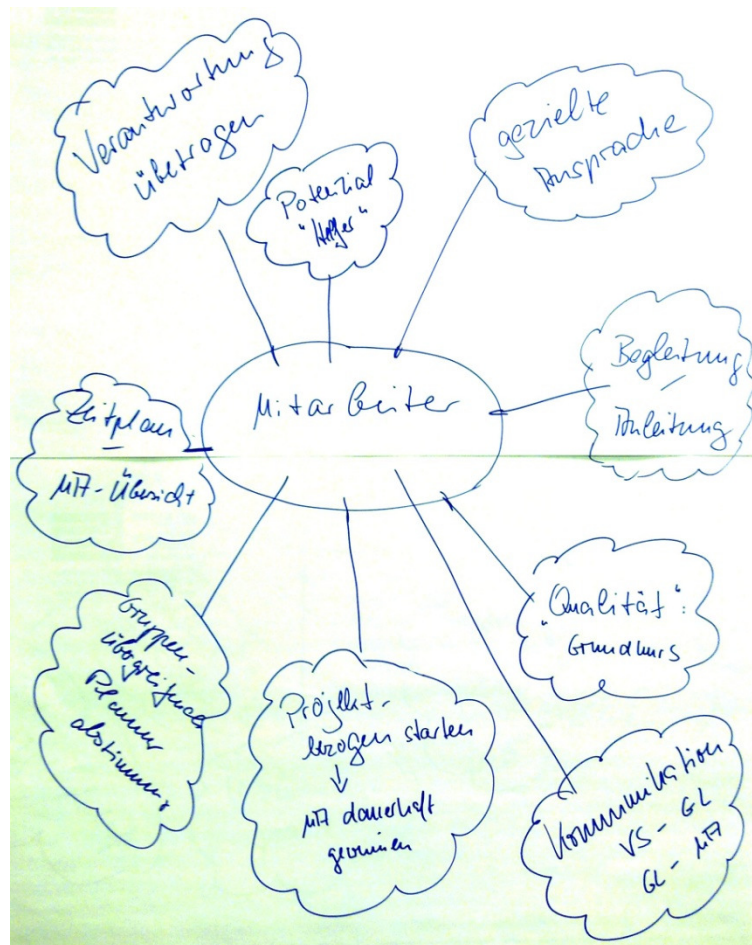 Verantwortung
übertragen
Potenzial
"Helfer"
gezielte
Ansprache
Begleitung
/
Anleitung
Mitarbeiter
Zeitplan
–
MA-Übersicht
"Qualität":
Grundkurs
Gruppen-
übergreifende
abstimmung
Projekt-
bezogen starten
↓
MA dauerhaft
gewinnen
Kommunikation
VS - GL
GL - MA